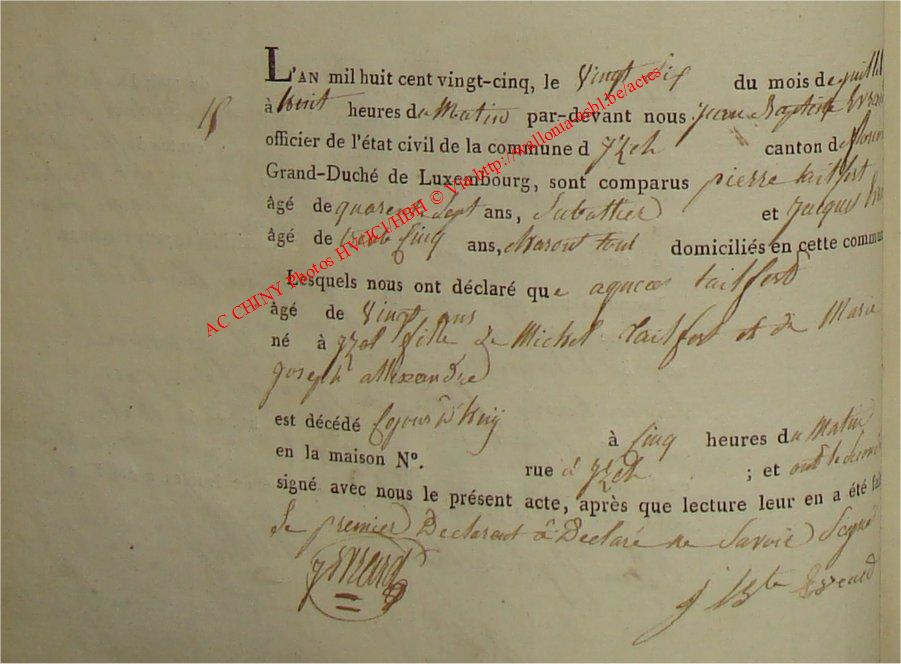 L'AN mil huit cent vingt-cinq, le vingt six du mois de juillet
18 à huit heures du Matin par-devant nous jean Baptiste
officier de l'état civil de la commune d yzel canton de
Grand-Duché de Luxembourg, sont comparus pierre taitfort
âgé de quarente sept ans, Sabottier et jacques
âgé de trente Cinq ans, Maront tous domiciliés en cette commun
Lesquels nous ont déclaré que agnees taitfort
âgé de vingt ans
né à yzel fille de Michel taitfort et de Marie
joseph allexandre
est décédé ce jour d'huy à Cinq heures du Matin
en la maison N°. rue à yzel ; et ont
signé avec nous le présent acte, après que lecture leur en a été fait
Le premier Declarent à Declaré ne Savoir Signé
j Bte Evrard
AC CHINY Photos HV-JCI/HBH © Via http://wallonia-asbl.be/actes